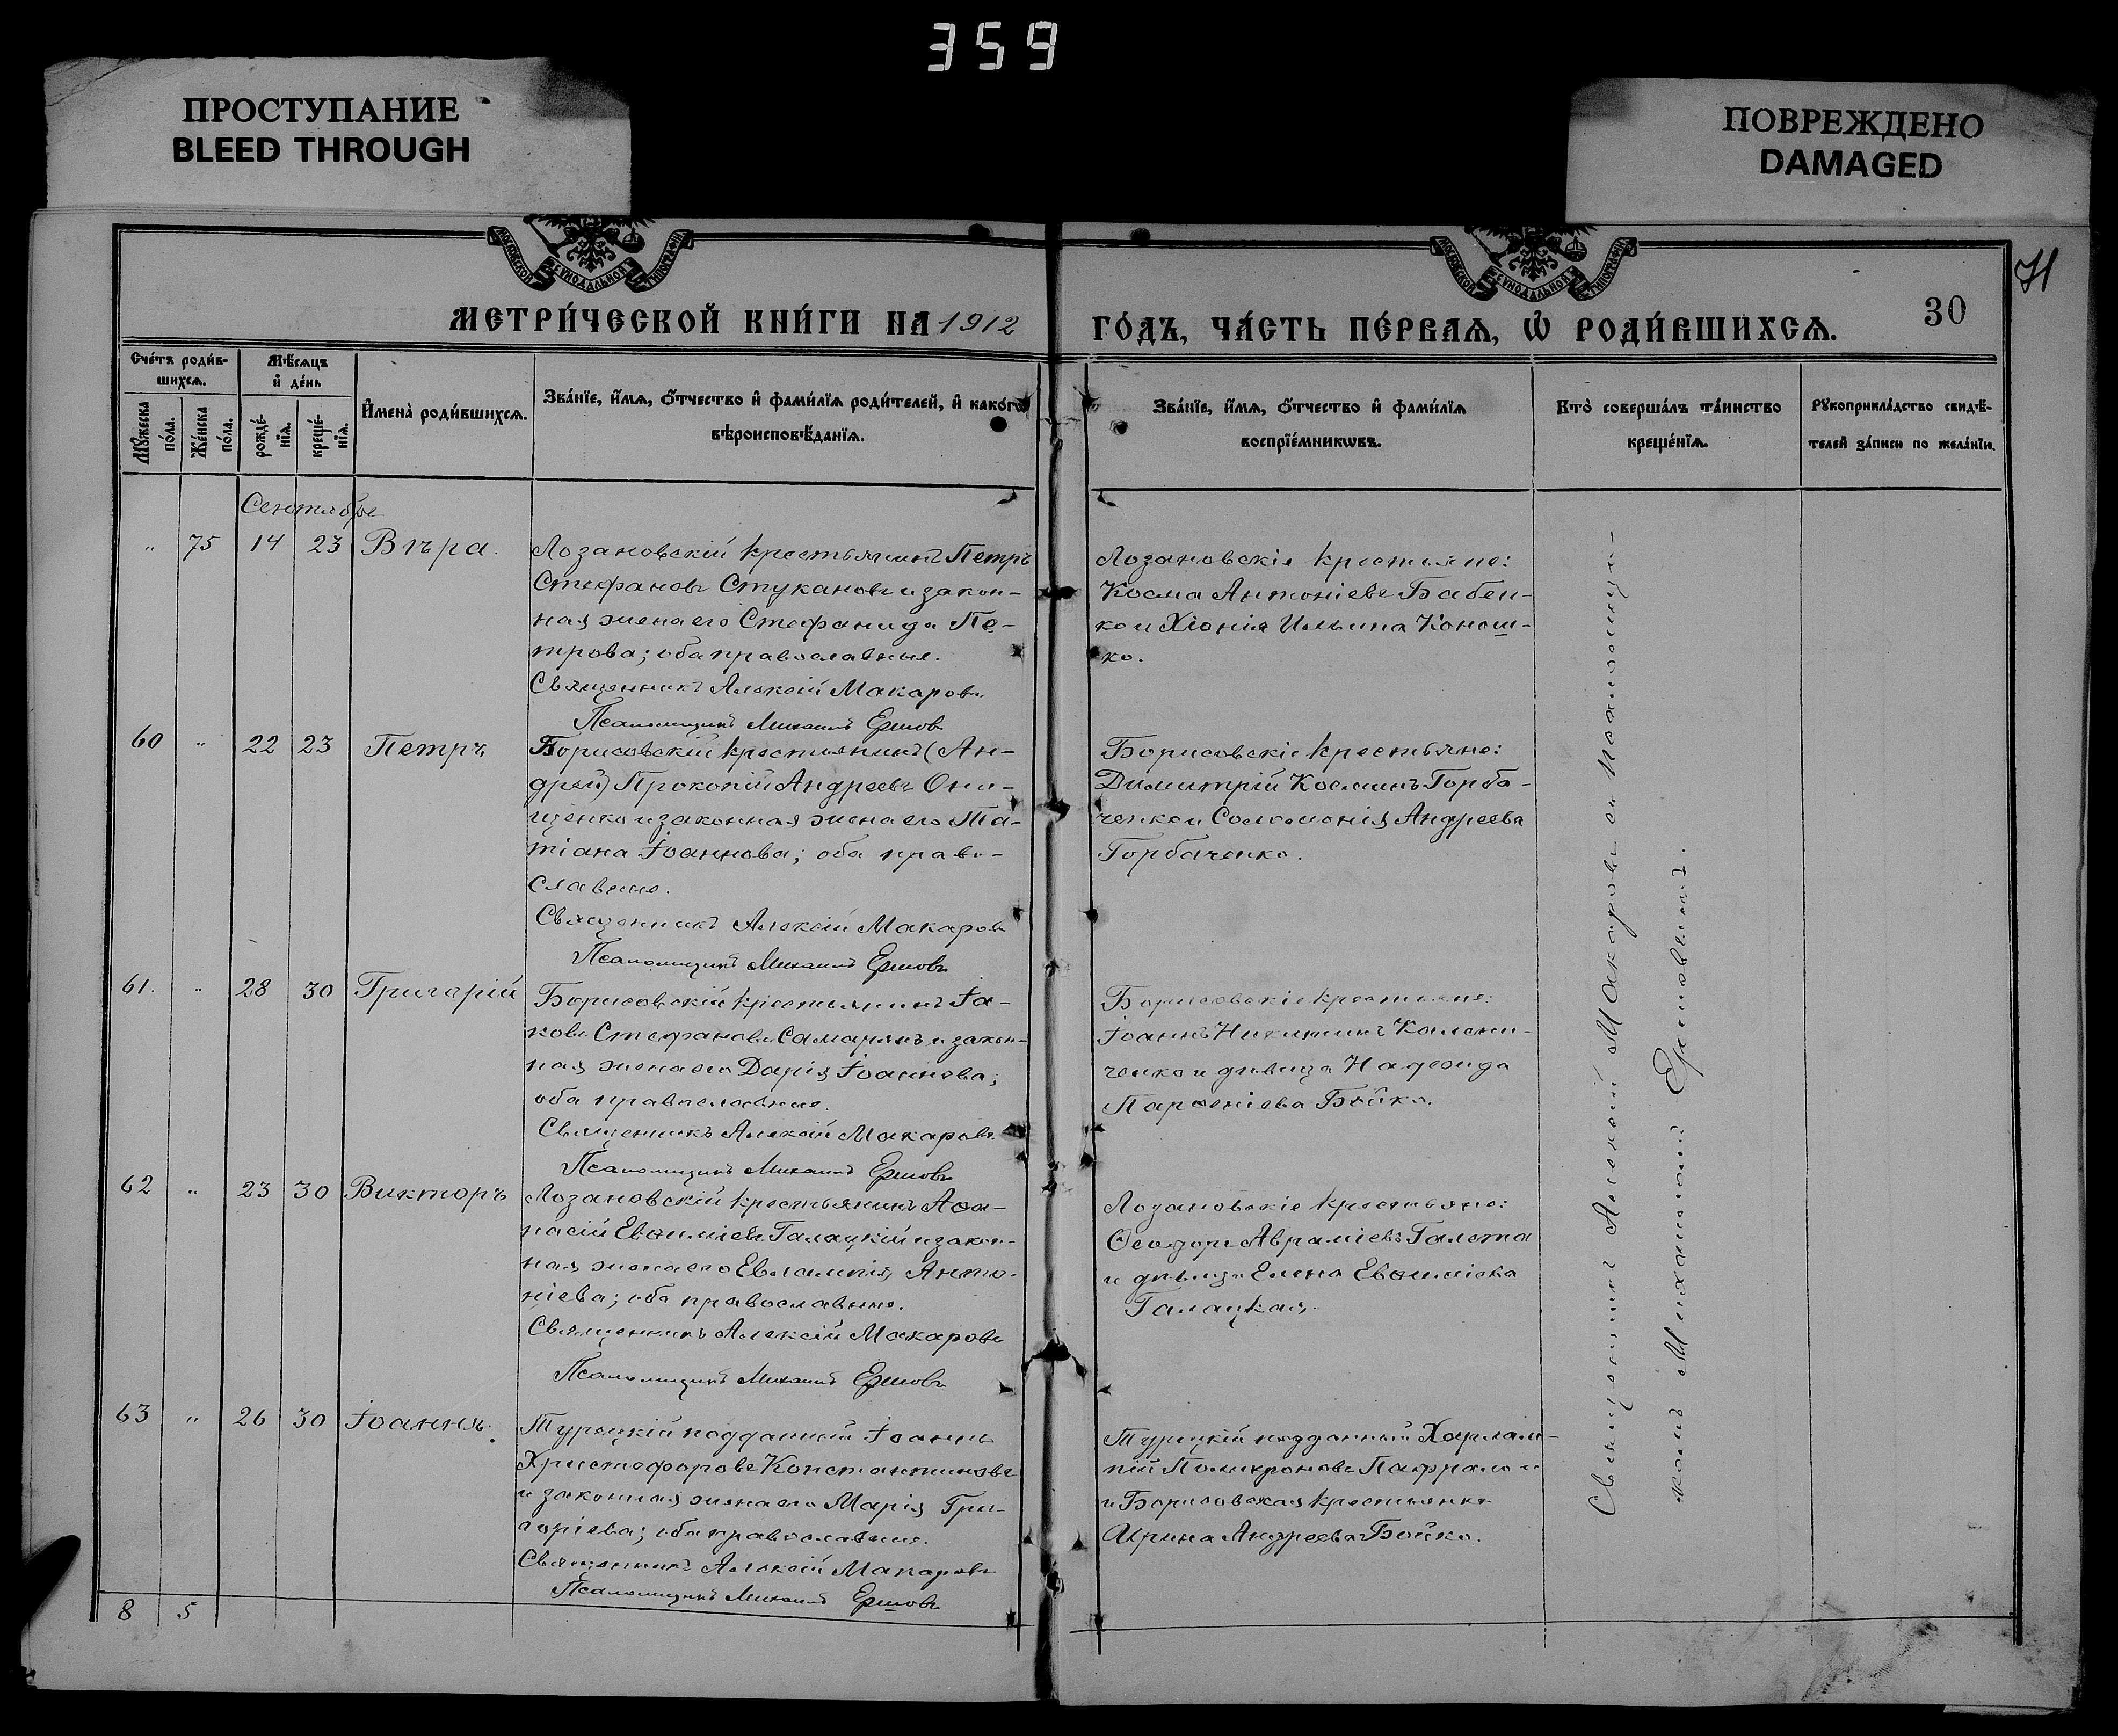 359
ПРОСТУПАНИЕ
BLEED THROUGH
ПОВРЕЖДЕНО
DAMAGED
МОСКОВСКОЙ СѴНОДАЛЬНОЙ ТИПОГРАФІИ
МОСКОВСКОЙ СѴНОДАЛЬНОЙ ТИПОГРАФІИ
МЕТРИ́ЧЕСКОЙ КНИ́ГИ НА 1912
ГО́ДЪ, ЧА́СТЬ ПЕ́РВАѦ, Ѡ҆ РОДИ́ВШИХСѦ.
30
71
Сче́тъ роди́в-
шихсѧ.
Мꙋ́жеска по́ла.
Же́нска по́ла.
Мѣ́сѧцъ
и҆ де́нь
рожде́-
нїѧ.
креще́-
нїѧ.
И҆мена̀ роди́вшихсѧ.
Зва́нїе, и҆́мѧ, ѻ҆́тчество и҆ фами́лїѧ роди́телей, и҆ како́гѡ
вѣроисповѣ́данїѧ.
Зва́нїе, и҆́мѧ, ѻ҆́тчество и҆ фами́лїѧ
воспрїе́мникѡвъ.
Кто̀ соверша́лъ та́инство
креще́нїѧ.
Рꙋкоприкла́дство свидѣ́-
телей за́писи по жела́нїю.
Сентябрь
" 75 14 23 Вѣра.
Лозановскій крестьянинъ Петръ
Стефановъ Стукановъ и закон-
ная жена его Стефанида Пе-
трова; оба православные.
Священникъ Алексій Макаровъ
Псаломщикъ Михаилъ Ершовъ
Лозановскіе крестьяне:
Косма Антоніевъ Бабен-
ко и Хіонія Ильина Конош-
ко.
60 " 22 23 Петръ
Борисовскій крестьянинъ (Ан-
дрей) Прокопій Андреевъ Они-
щенко и законная жена его Та-
тіана Іоаннова; оба право-
славные.
Священникъ Алексій Макаровъ
Псаломщикъ Михаилъ Ершовъ
Борисовскіе крестьяне:
Димитрій Косминъ Горба-
ченко и Соломонія Андреева
Горбаченко.
61. " 28 30 Григорій
Борисовскій крестьянинъ Іа-
ковъ Стефановъ и закон-
ная жена его Дарія Іоаннова;
оба православные.
Священникъ Алексій Макаровъ
Псаломщикъ Михаилъ Ершовъ
Борисовскіе крестьяне:
Іоаннъ Никитинъ Калени-
ченко и дѣвица Надежда
Парѳеніева Бойко.
62 " 23 30 Викторъ
Лозановскій крестьянинъ Аѳа-
насій Евѳиміевъ Галацкій и закон-
ная жена его Евлампія Анто-
ніева; оба православные.
Священникъ Алексій Макаровъ
Псаломщикъ Михаилъ Ершовъ
Лозановскіе крестьяне:
Ѳеодоръ Авраміевъ Галета
и дѣвица Елена Евѳиміева
Галацкая.
63 " 26 30 Іоаннъ.
Турецкій подданный Іоаннъ
Христофоровъ Константиновъ
и законная жена его Марія Гри-
горіева; оба православные.
Священникъ Алексій Макаровъ
Псаломщикъ Михаилъ Ершовъ
Турецкій подданный Харлам-
пій
и Борисовская крестьянка
Ирина Андреева Бойко.
Священникъ Алексій Макаровъ съ Псаломщи-
комъ Михаиломъ Ершовымъ.
8 5